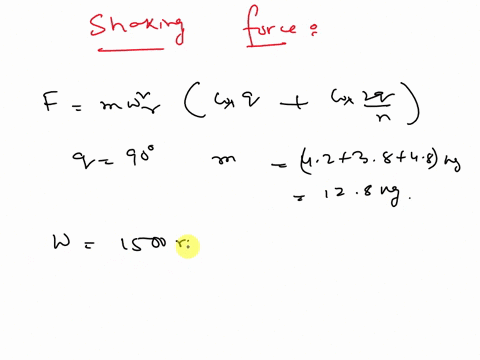 Shaking force:
F = mω²r (cos q + cos 2q/n)
q = 90° m = (4.2+3.8+4.8) kg
= 12.8 kg.
W = 1500 r